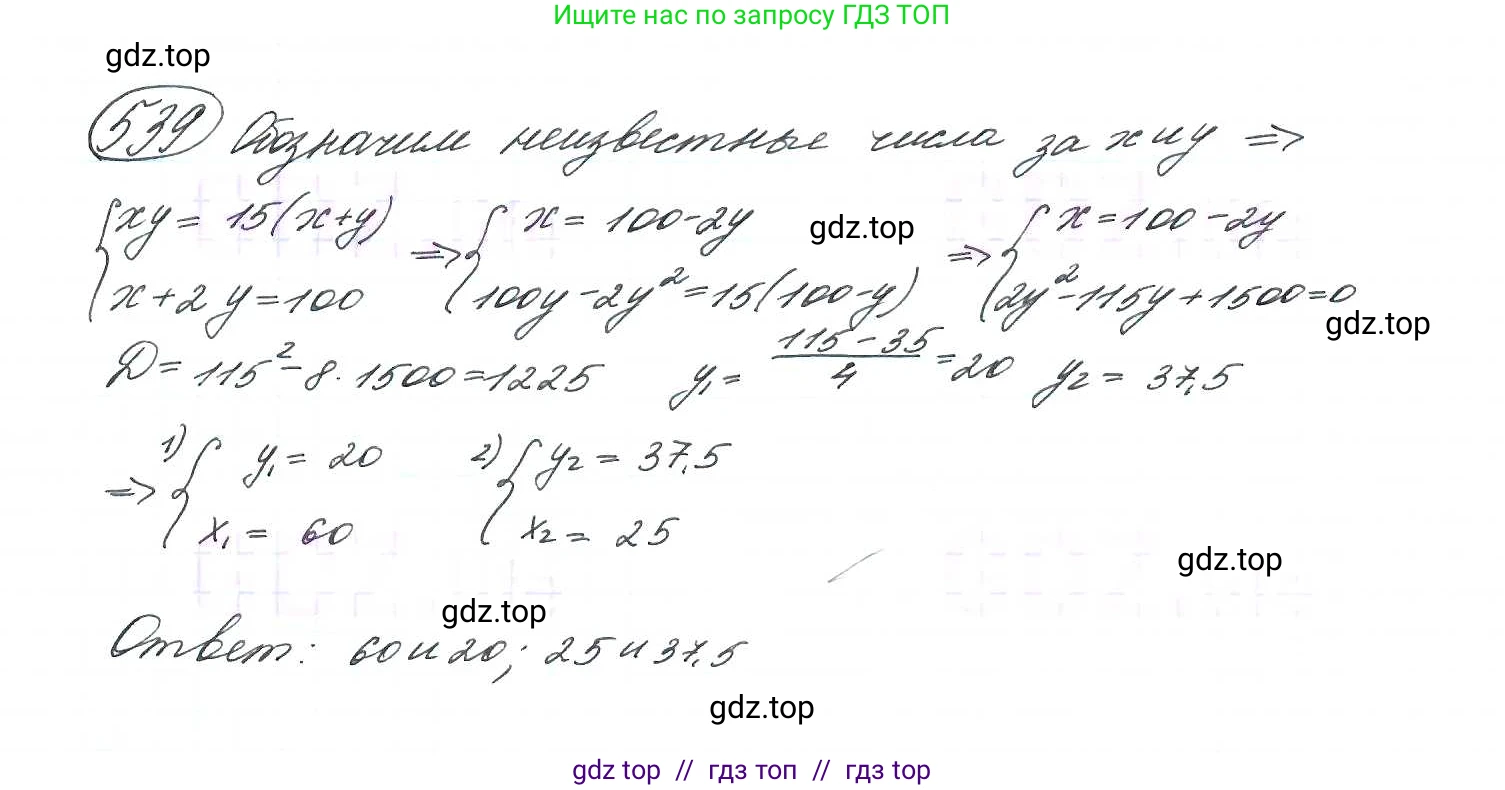 Ищите нас по запросу ГДЗ ТОП
gdz.top
539 Обозначим неизвестные числа за x и y =>
{ xy = 15(x+y) => { x = 100-2y gdz.top => { x = 100-2y
{ x + 2y = 100 { 100y - 2y² = 15(100-y) { 2y² - 115y + 1500 = 0
gdz.top
D = 115² - 8 · 1500 = 1225 y₁ = (115 - 35)/4 = 20 y₂ = 37,5
=> 1) { y₁ = 20 2) { y₂ = 37,5
{ x₁ = 60 { x₂ = 25
gdz.top
gdz.top
Ответ: 60 и 20; 25 и 37,5
gdz.top
gdz top // гдз топ // гдз top